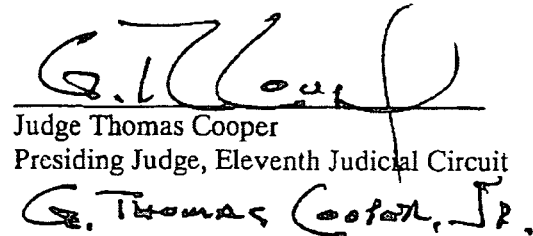 G. T. Cooper
Judge Thomas Cooper
Presiding Judge, Eleventh Judicial Circuit
G. Thomas Cooper, Jr.